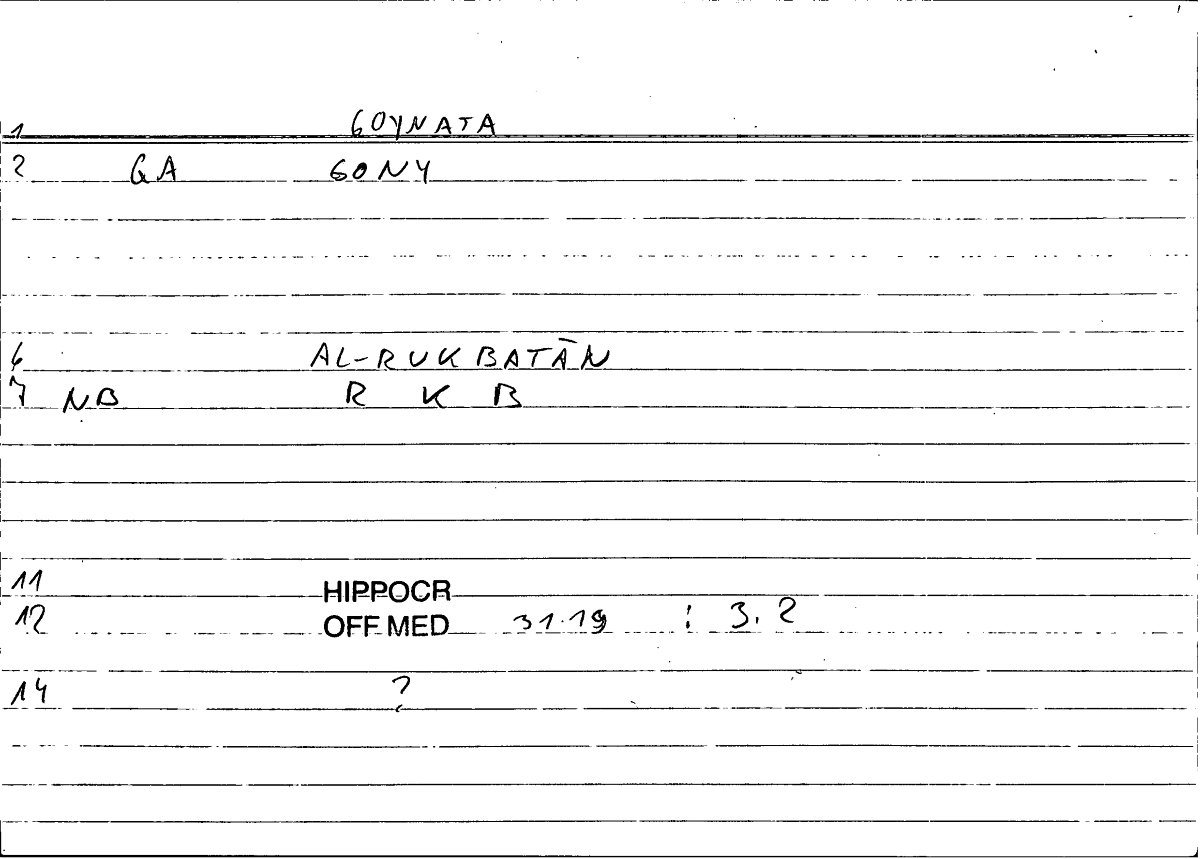 1 GOYNATA
2 GA GONY
6 AL-RUKBATĀN
7 NB R K B
11 HIPPOCR
12 OFF MED 31.19 : 3.2
14 ?